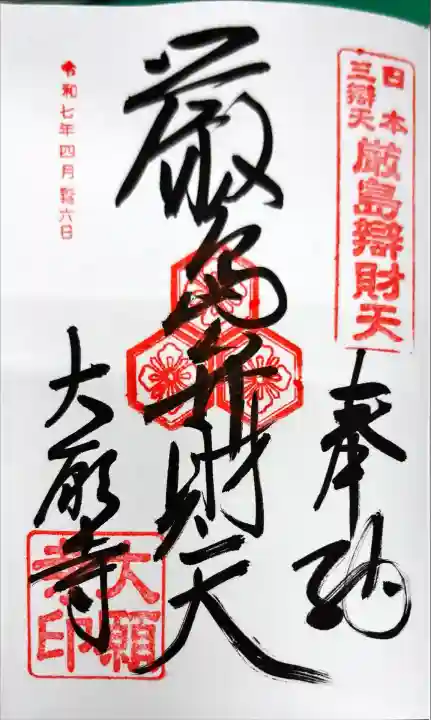 日本
三辯天
厳島辯財天
奉納
厳島弁財天
令和七年四月廿六日
大願寺
大願
寺印